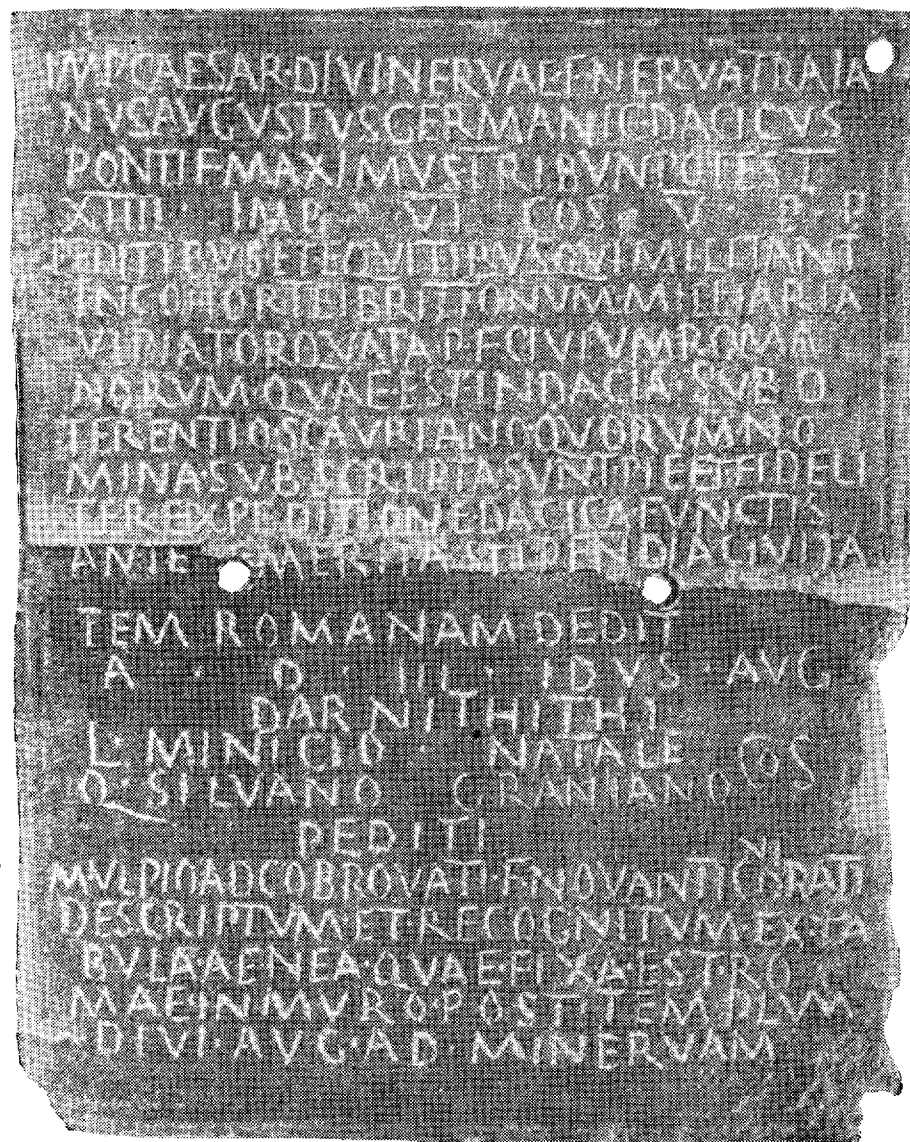 IMP·CAESAR·DIVI NERVAE·F NERVA TRAIA
NVS AVGVSTVS GERMANIC DACICVS
PONTIF MAXIMVS TRIBVN POTEST
XIIII IMP VI COS V P·P
PEDITIBVS ET EQVITIBVS QVI MILITANT
IN COHORTE I BRITTONVM·MILLIARIA
VLPIA TORQVATA P F CIVIVM ROMA
NORVM·QVAE EST IN DACIA·SVB D
TERENTIO SCAVRIANO QVORVM NO
MINA·SVBSCRIPTA SVNT PIE ET FIDELI
TER EXPEDITIONE DACICA FVNCTIS
ANTE EMERITA STIPENDIA CIVITA
TEM ROMANAM DEDIT
A · D · III · IDVS · AVG
DARNITHITHI
L· MINICIO · NATALE COS
Q· SILVANO GRANIANO
PEDITI
M VLPIO ADCOBROVATI·F NOVANTICONI RATI
DESCRIPTVM·ET·RECOGNITVM·EX·TA
BVLA·AENEA·QVAE·FIXA·EST·RO
MAE·IN MVRO·POST·TEMPLVM
DIVI·AVG·AD MINERVAM